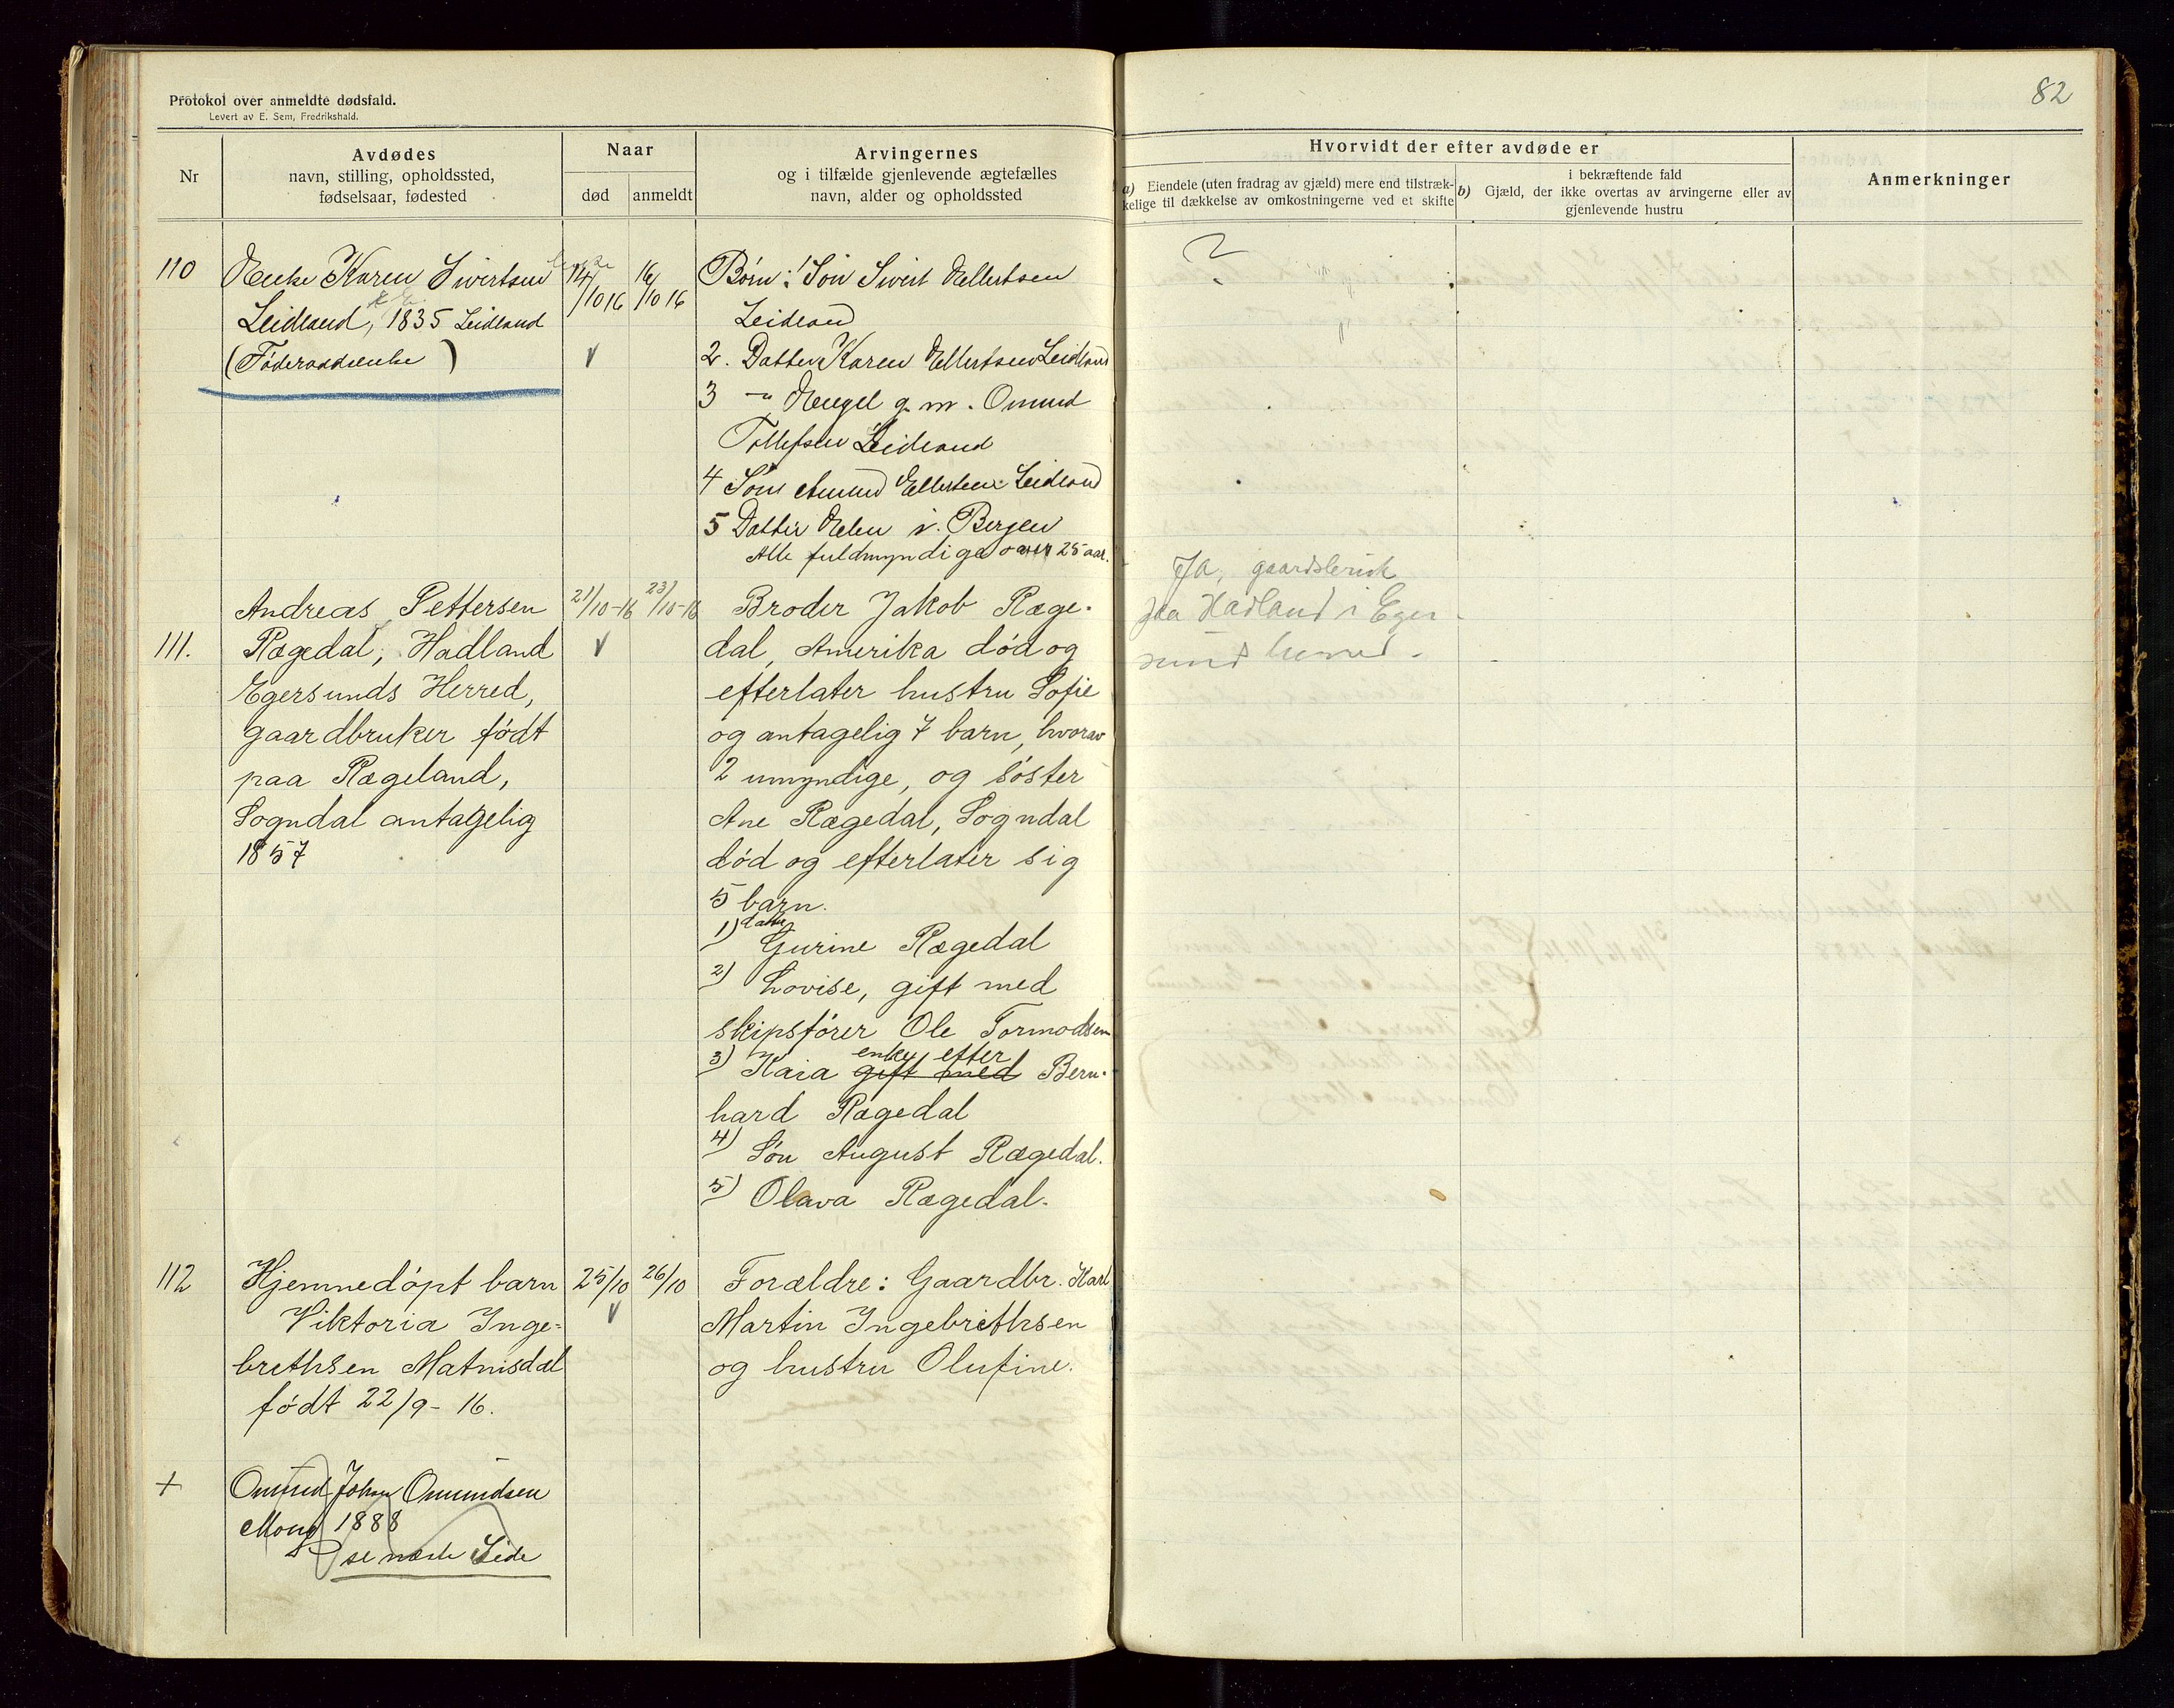 Protokol over anmeldte dødsfald.
Levert av E. Sem, Fredrikshald.
82
Nr
Avdødes
navn, stilling, opholdssted,
fødselsaar, fødested
Naar
død
anmeldt
Arvingernes
og i tilfælde gjenlevende ægtefælles
navn, alder og opholdssted
Hvorvidt der efter avdøde er
a) Eiendele (uten fradrag av gjæld) mere end tilstræk-
kelige til dækkelse av omkostningerne ved et skifte
i bekræftende fald
b) Gjæld, der ikke overtas av arvingerne eller av
gjenlevende hustru
Anmerkninger
110
Enke Karen Sivertsen
Leidland, 1835 Leidland
(Føderaadsenke)
14/10 16
16/10 16
Børn: 1 Søn Sivert Ellertsen
Leidland
2. Datter Karen Ellertsen Leidland
3 -"- Engel g. m. Omund
Tollefsen Leidland
4 Søn Amund Ellertsen Leidland
5 Datter Elen i Bergen
Alle fuldmyndige over 25 aar.
?
111.
Andreas Pettersen
Rægedal, Hadland
Egersunds Herred,
gaardbruker født
paa Rægeland,
Sogndal antagelig
1857
21/10-16
23/10-16
Broder Jakob Ræge-
dal, Amerika død og
efterlater hustru Sofie
og antagelig 7 barn, hvorav
2 umyndige, og søster
Ane Rægedal, Sogndal
død og efterlater sig
5 barn.
1) datter
Gurine Rægedal
2) Lovise, gift med
skipsfører Ole Tormodsen
enke efter
3) Kaia gift med Bern-
hard Rægedal
4) Søn August Rægedal.
5) Olava Rægedal.
Ja, gaardsbruk
paa Hadland i Eger-
sund herred.
112
Hjemmedøpt barn
Viktoria Inge-
brethsen Matnisdal
født 22/9-16.
25/10
26/10
Forældre: Gaardbr. Karl
Martin Ingebrethsen
og hustru Olufine.
+
Omund Johan Omundsen
Mong 1888
se næste Side